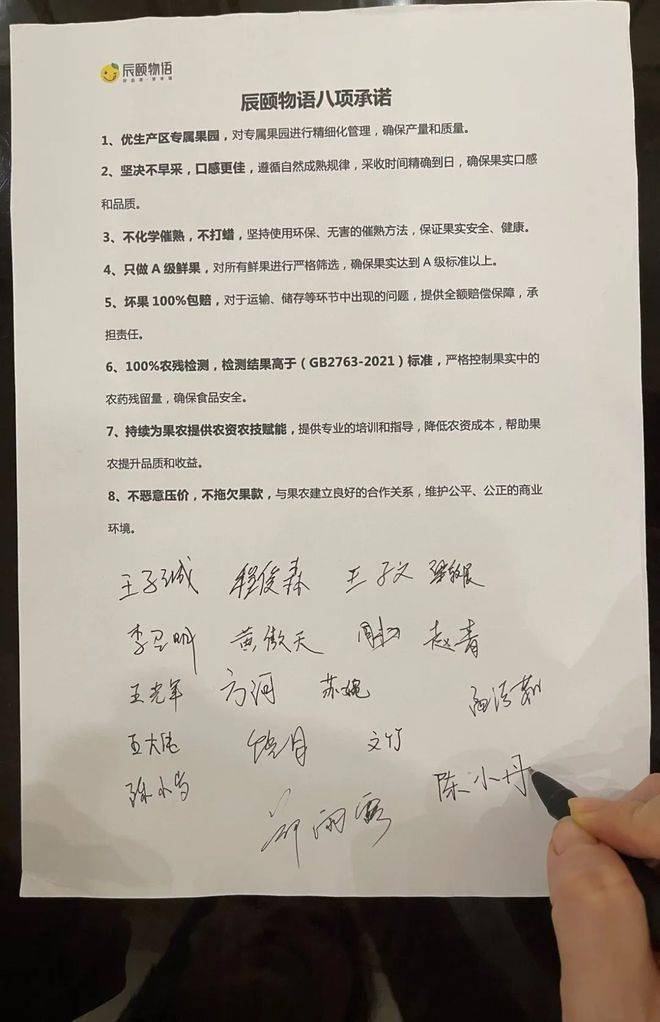 辰颐物语
辰颐物语八项承诺
1、优生产区专属果园，对专属果园进行精细化管理，确保产量和质量。
2、坚决不早采，口感更佳，遵循自然成熟规律，采收时间精确到日，确保果实口感
和品质。
3、不化学催熟，不打蜡，坚持使用环保、无害的催熟方法，保证果实安全、健康。
4、只做 A 级鲜果，对所有鲜果进行严格筛选，确保果实达到 A 级标准以上。
5、坏果 100%包赔，对于运输、储存等环节中出现的问题，提供全额赔偿保障，承
担责任。
6、100%农残检测，检测结果高于（GB2763-2021）标准，严格控制果实中的
农药残留量，确保食品安全。
7、持续为果农提供农资农技赋能，提供专业的培训和指导，降低农资成本，帮助果
农提升品质和收益。
8、不恶意压价，不拖欠果款，与果农建立良好的合作关系，维护公平、公正的商业
环境。
王子诚 程俊森 王子文
黄傲天 赵青
王光军 方河 苏婉
文竹
陈小丹
雨露